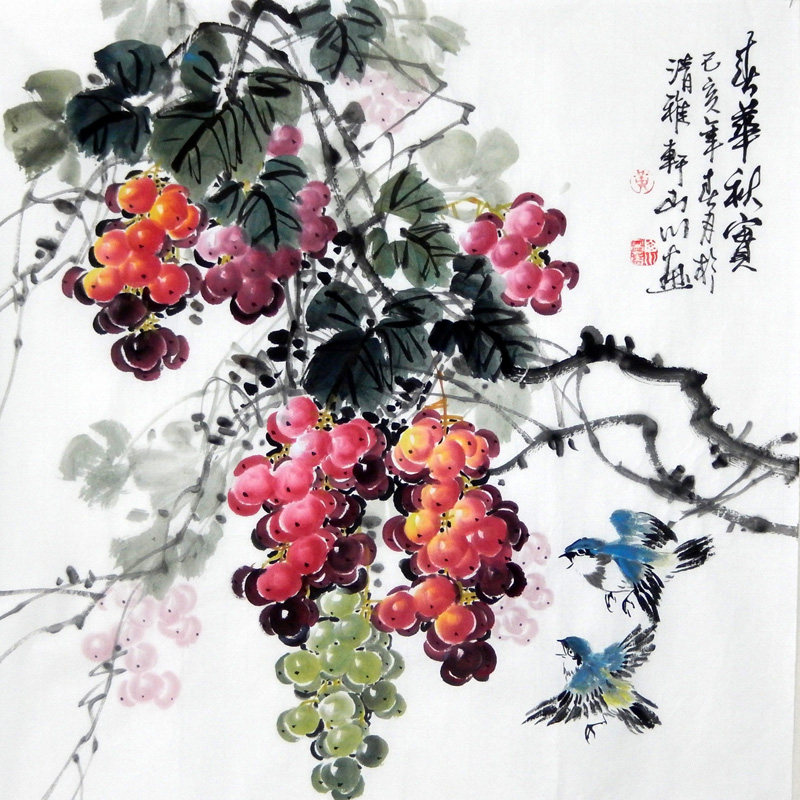 春華秋實
己亥年春月於
清雅軒山川画